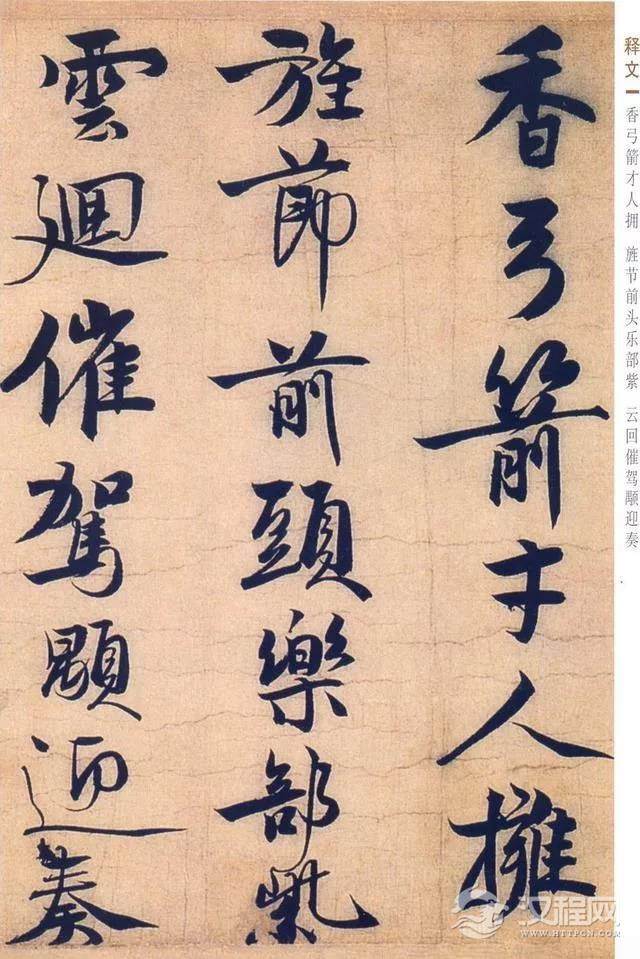 香弓箭才人擁
旌節前頭樂部紫
雲迴催駕顒迎奏
释文 香弓箭才人拥 旌节前头乐部紫 云回催驾颙迎奏
汉程网
WWW.HTTPCN.COM